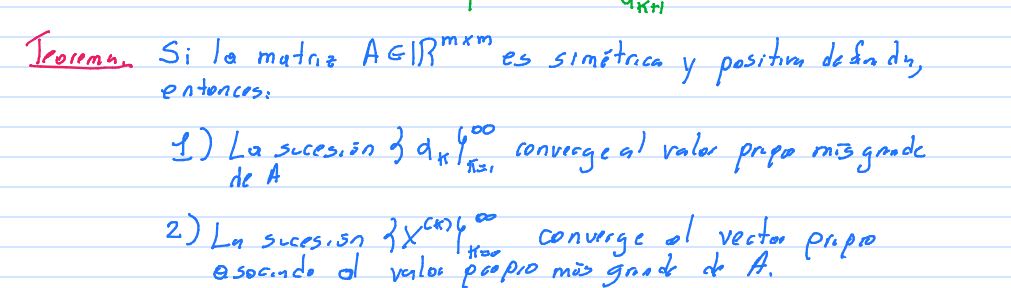 α_{K+1}
Teorema. Si la matriz A ∈ ℝ^{m×m} es simétrica y positiva definida,
entonces:
1) La sucesión {α_K}_{K=1}^∞ converge al valor propio más grande
de A
2) La sucesión {X^{(K)}}_{K=0}^∞ converge al vector propio
asociado al valor propio más grande de A.